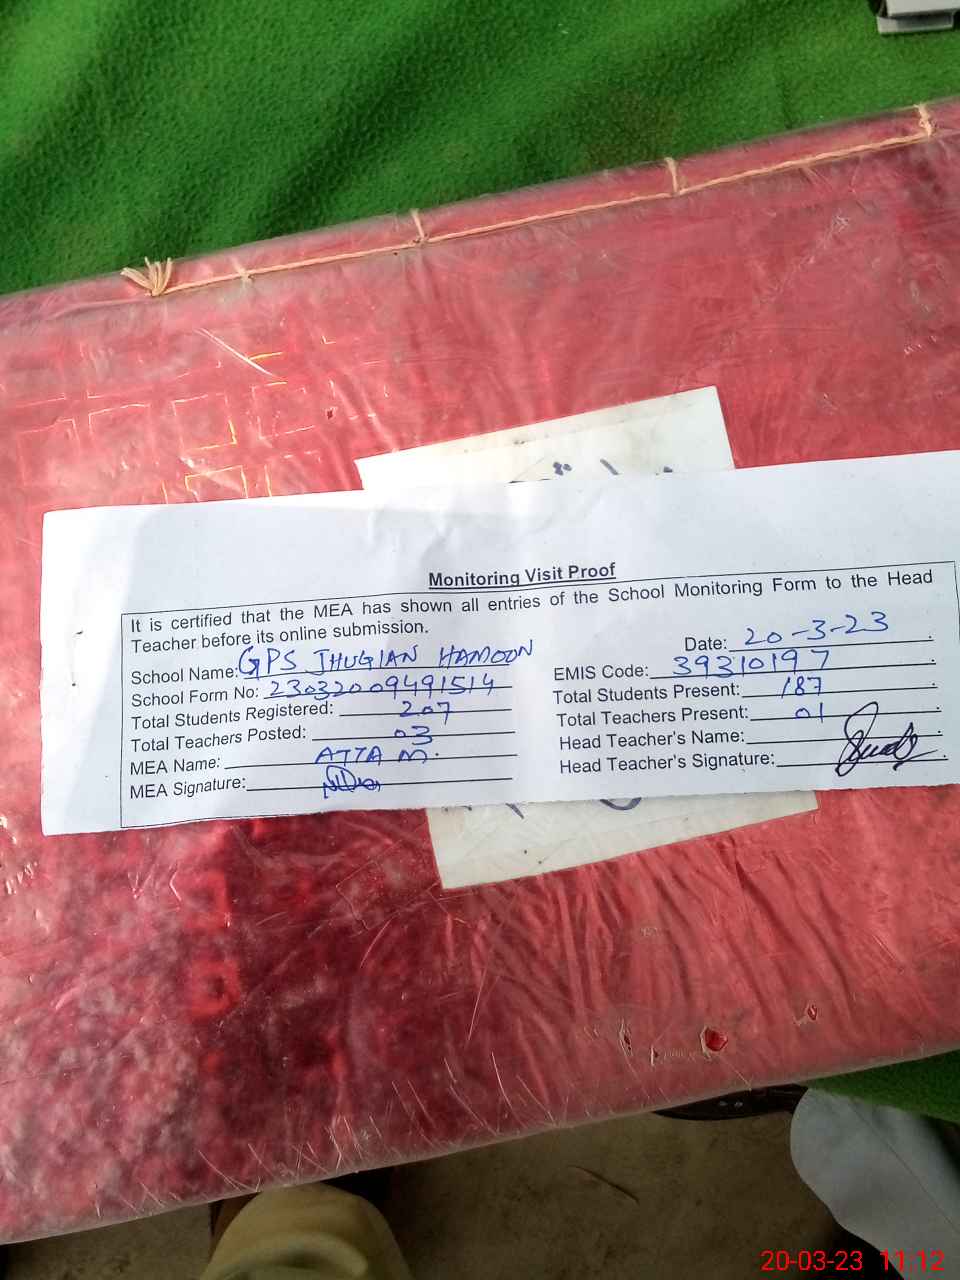 Monitoring Visit Proof
It is certified that the MEA has shown all entries of the School Monitoring Form to the Head
Teacher before its online submission.
Date: 20-3-23
School Name: GPS JHUGIAN HAMOON
EMIS Code: 39310197
School Form No: 23032009491514
Total Students Present: 187
Total Students Registered: 207
Total Teachers Present: 01
Total Teachers Posted: 03
Head Teacher's Name:
MEA Name: ATTA M.
Head Teacher's Signature:
MEA Signature:
20-03-23 11:12